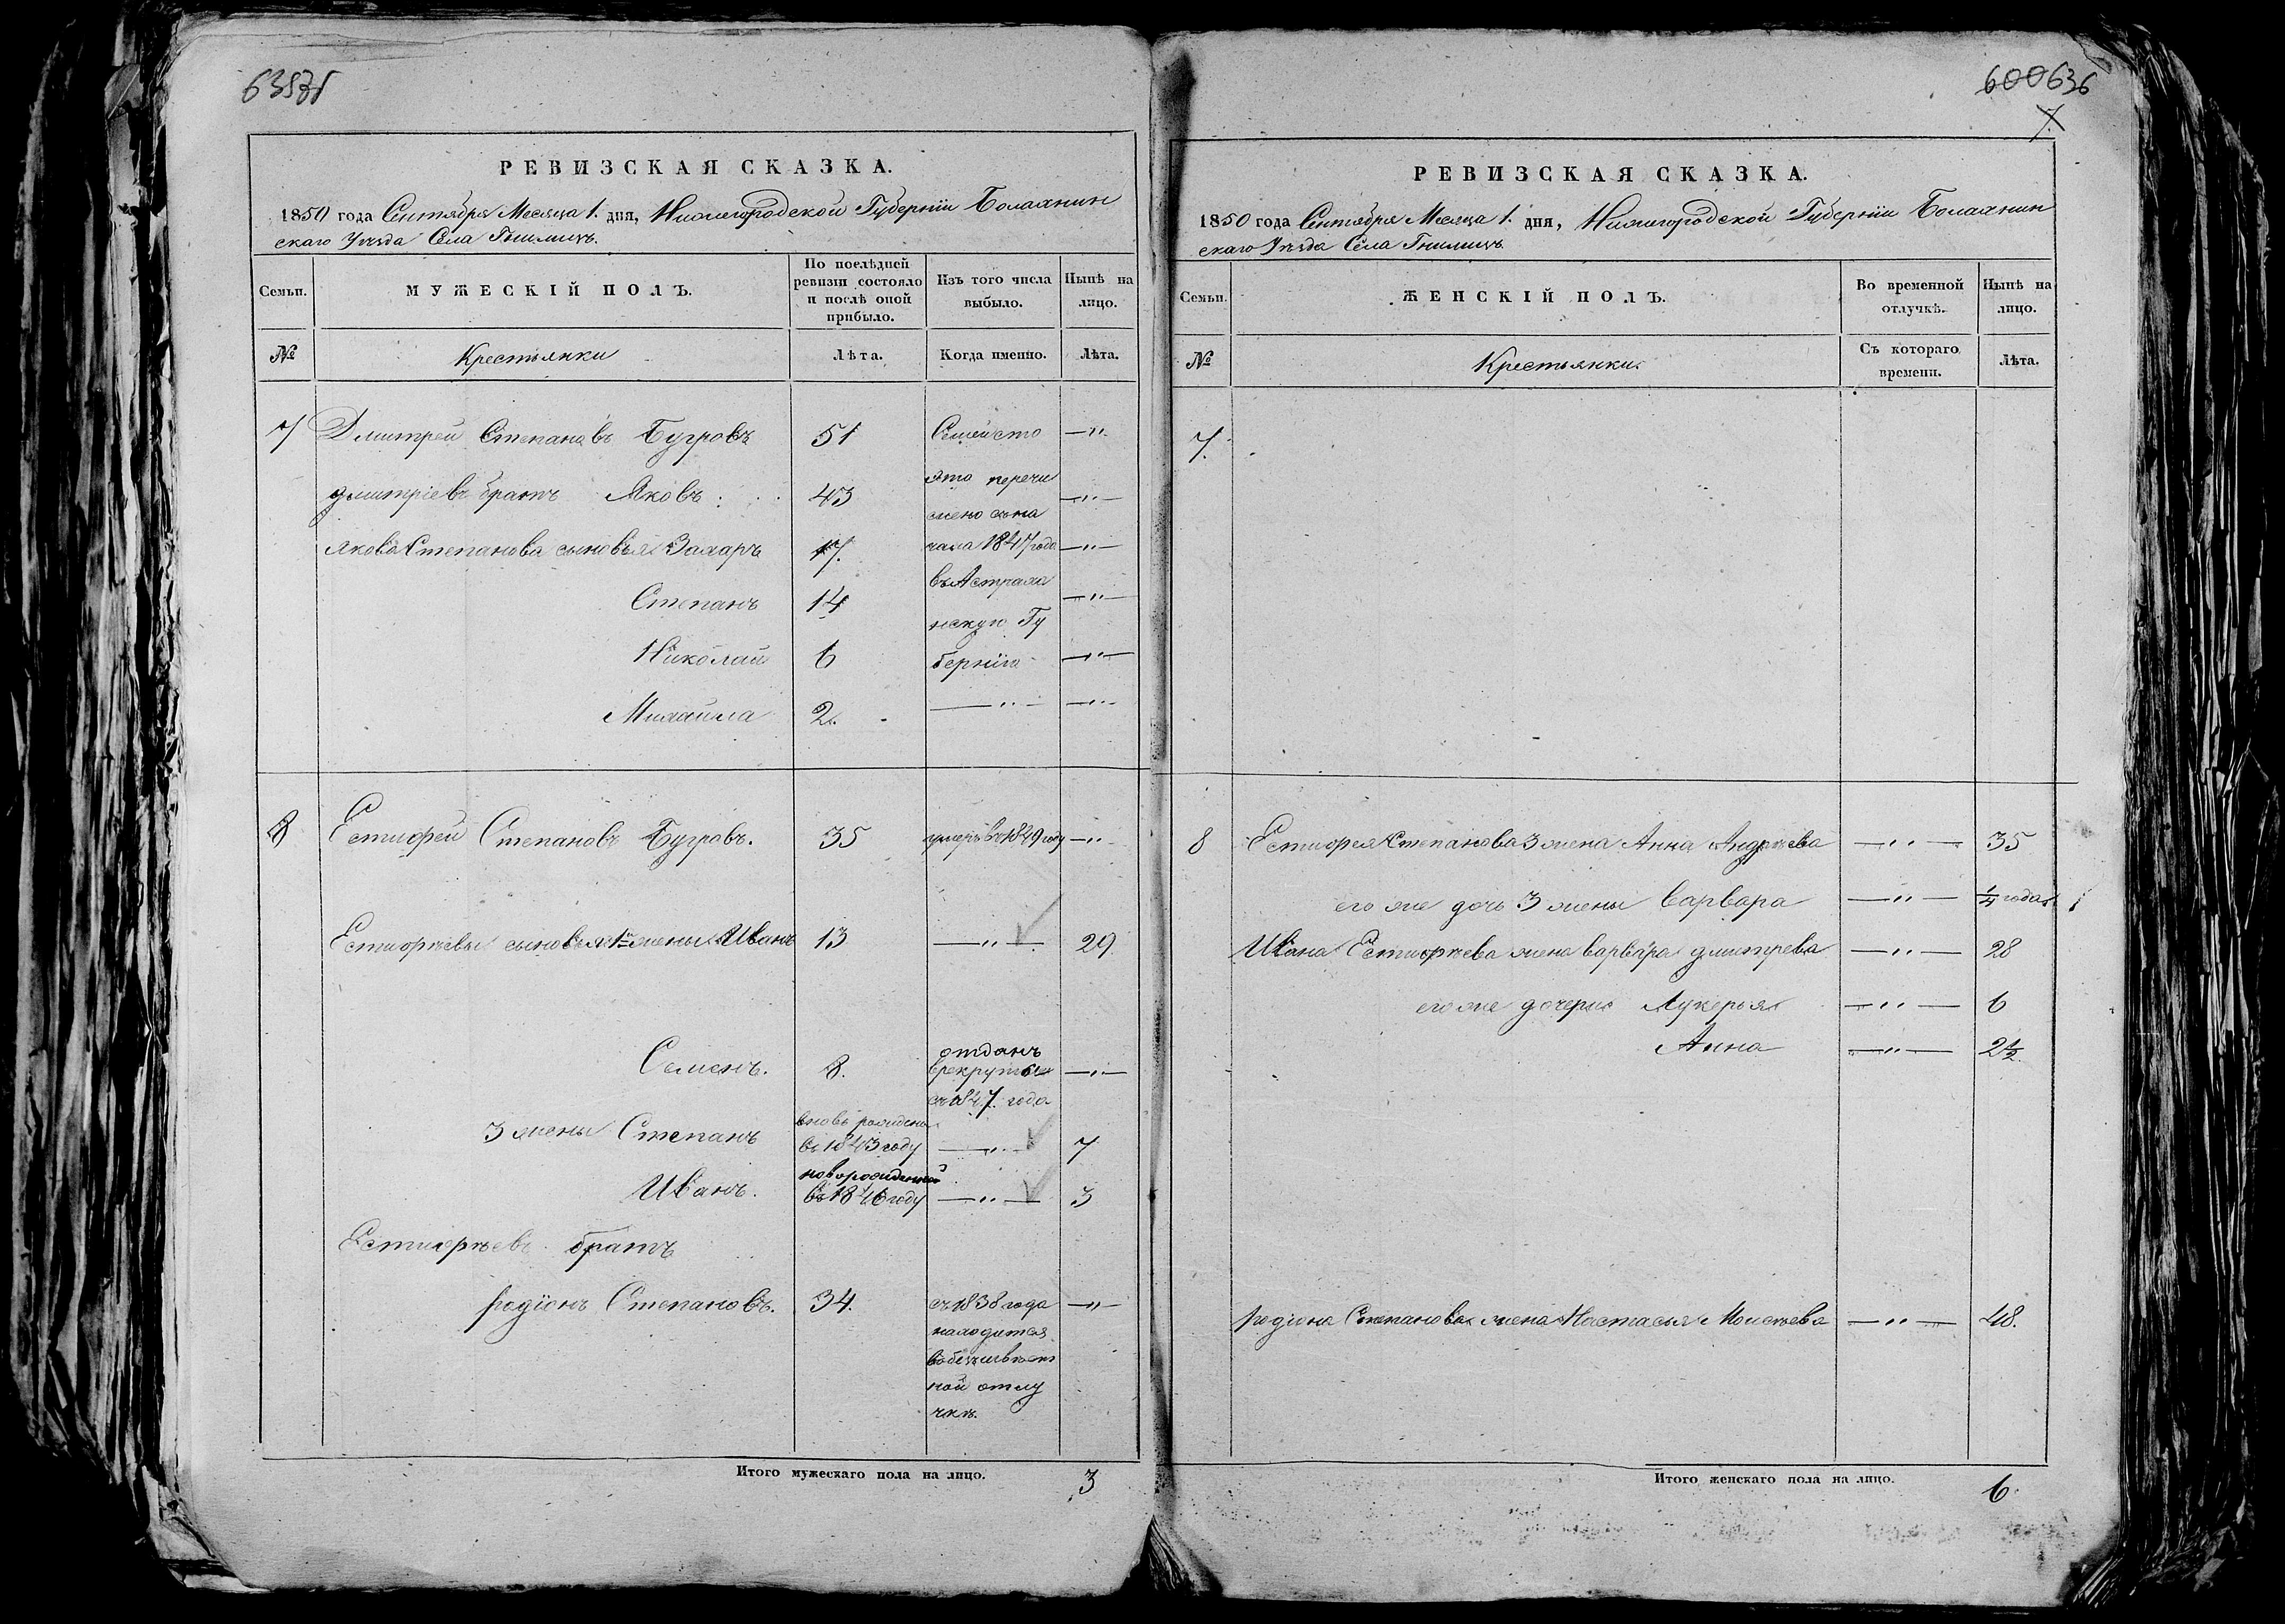 635
РЕВИЗСКАЯ СКАЗКА.
1850 года Сентября Месяца 1. дня, Нижегородской Губернiи Балахнин
скаго Уѣзда Села Гнилицъ.
Семьи.
МУЖЕСКIЙ ПОЛЪ.
По послѣдней ревизiи состояло и послѣ оной прибыло.
Изъ того числа выбыло.
Нынѣ на лицо.
№
Крестьянки
Лѣта.
Когда именно.
Лѣта.
7 Дмитрей Степановъ Бугровъ 51 Семейсто —"—
дмитрiевъ братъ Яковъ 43 ято перечи —"—
слено съ на
якова Степанова сыновья Захаръ 17. чала 1847 года —"—
въ Астраха
Степанъ 14 —"—
нскую Гу
Николай 6 бернiю —"—
Михайла 2. —"— —"—
8 Естифей Степановъ Бугровъ. 35 умеръ в 1849 году —"—
Естифѣевы сыновья 1й жены Иванъ 13 —"— 29
отданъ
Семенъ. 8. врекруты —"—
съ 1847. года
вновь рожденъ
3 жены Степанъ въ 1843 году —"— 7
новорожденный
Иванъ. въ 1846 году —"— 3
Естифѣевъ братъ
родiонъ Степановъ. 34. съ 1838 года —"—
находится
вобезызвѣст
ной отлу
чкѣ.
Итого мужескаго пола на лицо. 3
600 636
7.
РЕВИЗСКАЯ СКАЗКА.
1850 года Сентября Месяца 1. дня, Нижегородской Губернiи Балахнин
скаго Уѣзда Села Гнилицъ
Семьи.
ЖЕНСКIЙ ПОЛЪ.
Во временной отлучкѣ.
Нынѣ на лицо.
№
Крестьянки.
Съ котораго времени.
Лѣта.
7.
8 Естифея Степанова 3 жена Анна Андреева —"— 35
его же дочь 3 жены Варвара —"— 1/4 года
Ивана Естифѣева жена варвара дмитрева —"— 28
его же дочери Лукерья —"— 6
Анна —"— 2 1/2
родiона Степанова жена Настасья Моисѣева —"— 48.
Итого женскаго пола на лицо. 6.